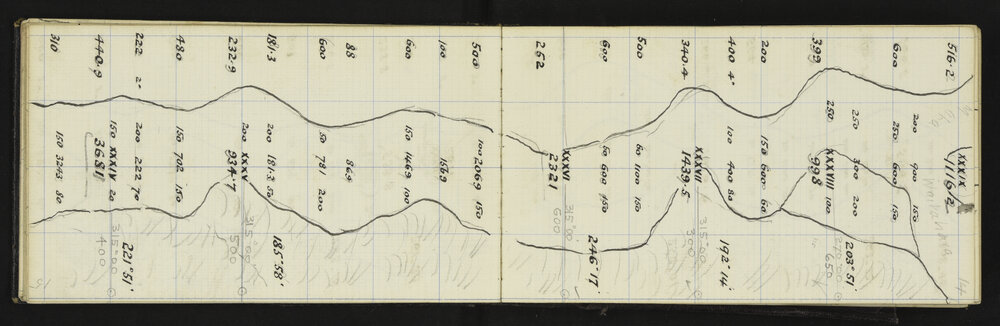 516.2 XXXIX 1116.2 14
200 900 150
600 250 600 150
250 300 200 203°51'
399 250 XXXVIII 100
998 650
200 150 600 60
400 4° 100 400 80 192°14'
XXXVII 315°00
340.4 1439.5 300
500 60 1100 150
600 50 600 150 246°17'
XXXVI 315°00
262 2321 600
500 100 2069 150
100 1569
600 150 1469 100
88 869
600 50 781 200
181.3 200 181.3 50 185°58'
200 XXXV 315°00
232.9 934.7 500
480 150 702 150
222 2° 200 222 70 221°51'
150 XXXIV 20 315°00
440.9 3681 400
310 150 3243 80
15